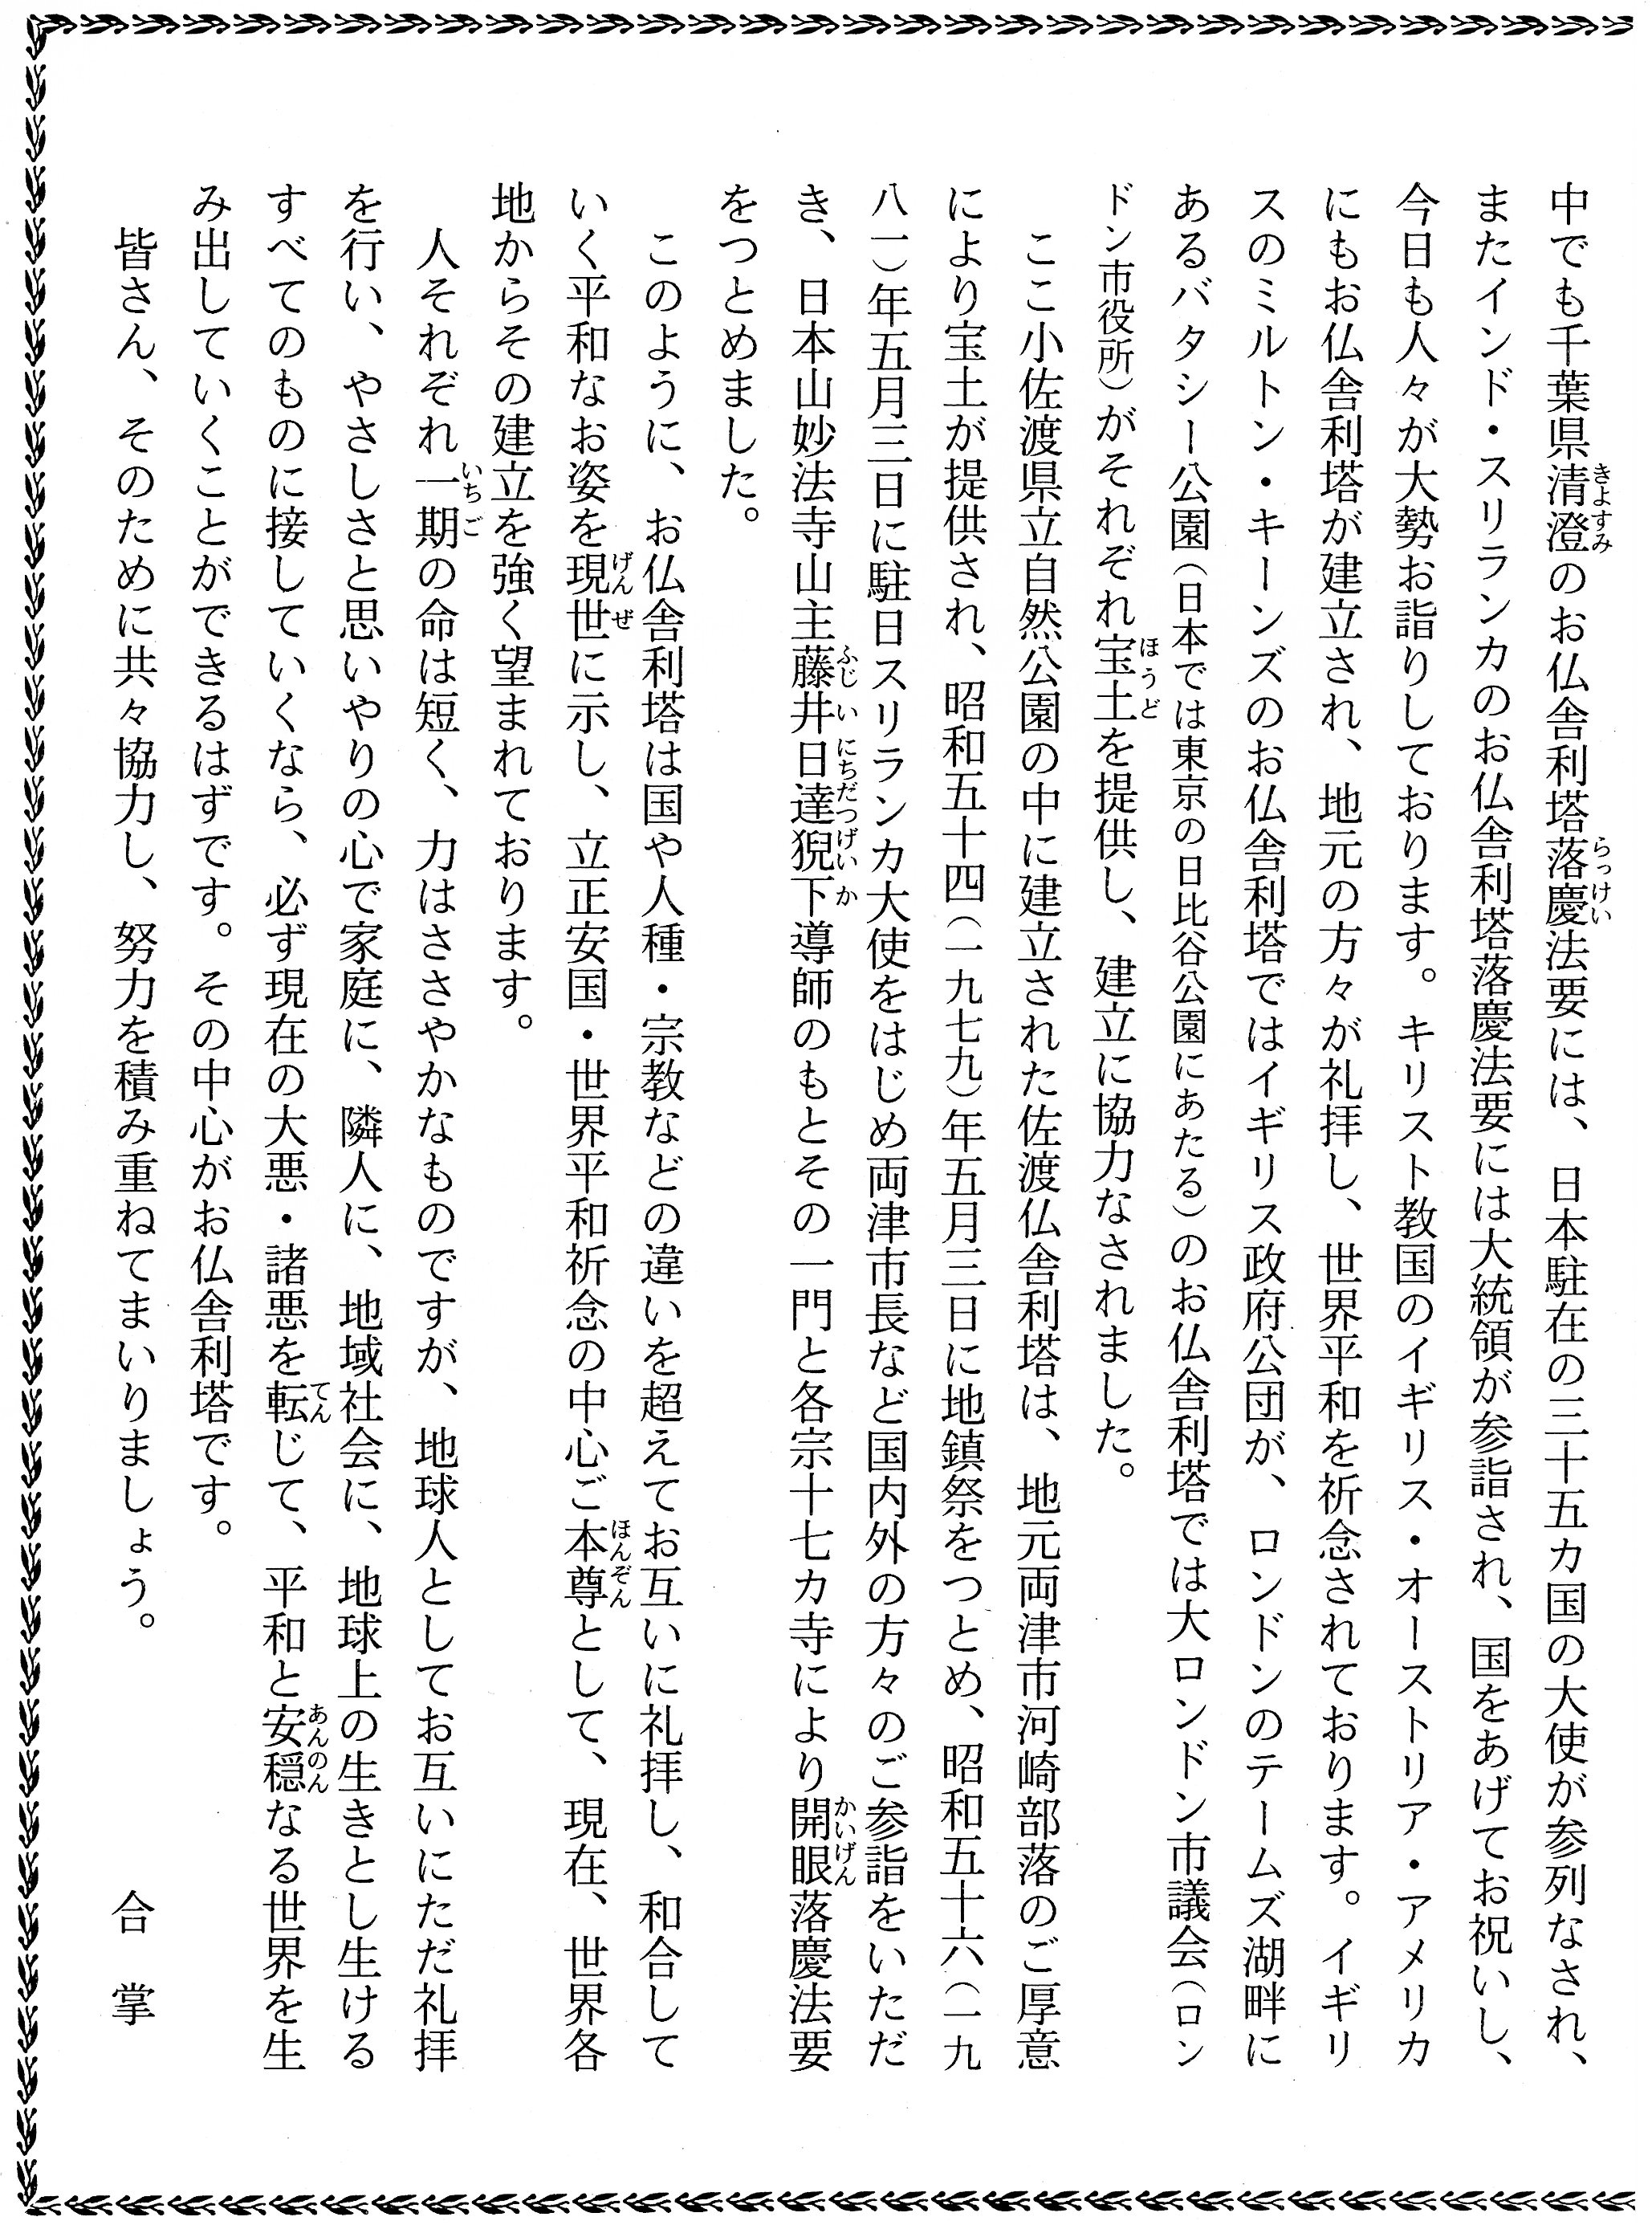 中でも千葉県清澄のお仏舎利塔落慶法要には、日本駐在の三十五カ国の大使が参列なされ、
またインド・スリランカのお仏舎利塔落慶法要には大統領が参詣され、国をあげてお祝いし、
今日も人々が大勢お詣りしております。キリスト教国のイギリス・オーストリア・アメリカ
にもお仏舎利塔が建立され、地元の方々が礼拝し、世界平和を祈念されております。イギリ
スのミルトン・キーンズのお仏舎利塔ではイギリス政府公団が、ロンドンのテームズ湖畔に
あるバタシー公園（日本では東京の日比谷公園にあたる）のお仏舎利塔では大ロンドン市議会（ロン
ドン市役所）がそれぞれ宝土を提供し、建立に協力なされました。
ここ小佐渡県立自然公園の中に建立された佐渡仏舎利塔は、地元両津市河崎部落のご厚意
により宝土が提供され、昭和五十四（一九七九）年五月三日に地鎮祭をつとめ、昭和五十六（一九
八一）年五月三日に駐日スリランカ大使をはじめ両津市長など国内外の方々のご参詣をいただ
き、日本山妙法寺山主藤井日達猊下導師のもとその一門と各宗十七カ寺により開眼落慶法要
をつとめました。
このように、お仏舎利塔は国や人種・宗教などの違いを超えてお互いに礼拝し、和合して
いく平和なお姿を現世に示し、立正安国・世界平和祈念の中心ご本尊として、現在、世界各
地からその建立を強く望まれております。
人それぞれ一期の命は短く、力はささやかなものですが、地球人としてお互いにただ礼拝
を行い、やさしさと思いやりの心で家庭に、隣人に、地域社会に、地球上の生きとし生ける
すべてのものに接していくなら、必ず現在の大悪・諸悪を転じて、平和と安穏なる世界を生
み出していくことができるはずです。その中心がお仏舎利塔です。
皆さん、そのために共々協力し、努力を積み重ねてまいりましょう。 合掌